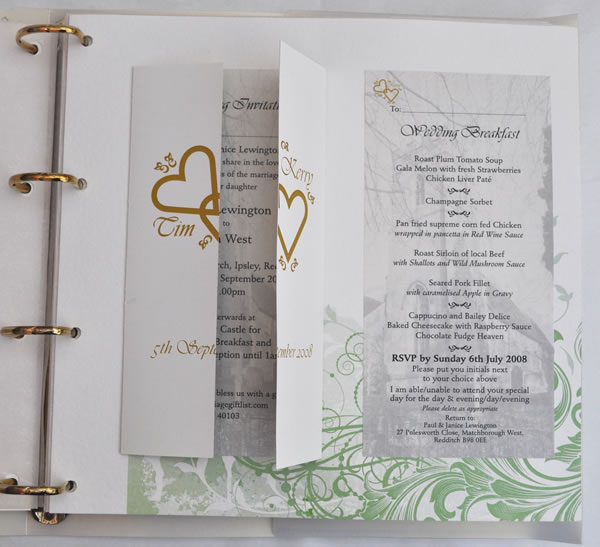 Tim
5th Septe
Kerry
ember 2008
g Invitat
nice Lewington
share in the love
s of the marriage
r daughter
Lewington
to
West
rch, Ipsley, Re
September 20
.00pm
fterwards at
Castle for
Breakfast and
ption until 1a
bless us with a g
agegiftlist.com
40103
To:
Wedding Breakfast
Roast Plum Tomato Soup
Gala Melon with fresh Strawberries
Chicken Liver Paté
Champagne Sorbet
Pan fried supreme corn fed Chicken
wrapped in pancetta in Red Wine Sauce
Roast Sirloin of local Beef
with Shallots and Wild Mushroom Sauce
Seared Pork Fillet
with caramelised Apple in Gravy
Cappucino and Bailey Delice
Baked Cheesecake with Raspberry Sauce
Chocolate Fudge Heaven
RSVP by Sunday 6th July 2008
Please put you initials next
to your choice above
I am able/unable to attend your special
day for the day & evening/day/evening
Please delete as appropriate
Return to:
Paul & Janice Lewington
27 Polesworth Close, Matchborough West,
Redditch B98 0EE